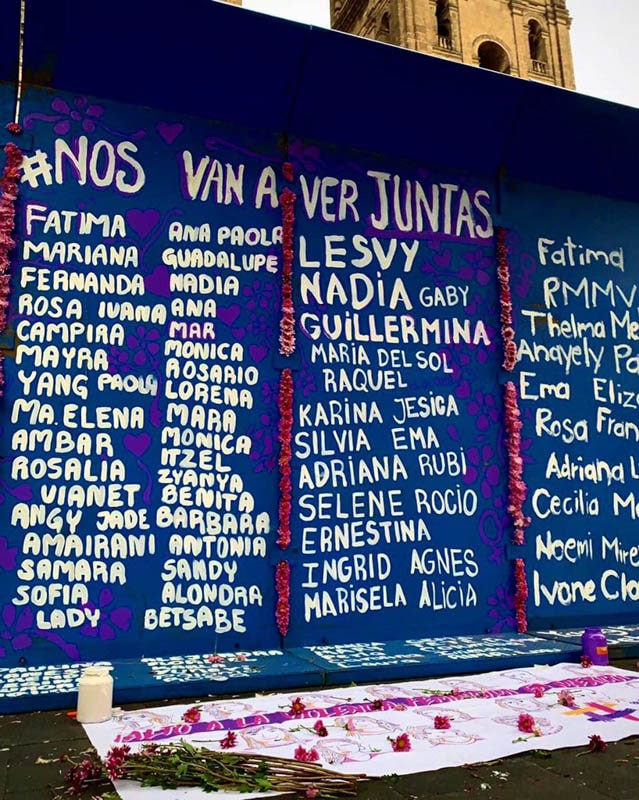 #NOS VAN A VER JUNTAS
FATIMA
MARIANA
FERNANDA
ROSA IVANA
CAMPIRA
MAYRA
YANG PAOLA
MA. ELENA
AMBAR
ROSALIA
VIANET
ANGY JADE
AMAIRANI
SAMARA
SOFIA
LADY
ANA PAOLA
GUADALUPE
NADIA
ANA
MAR
MONICA
ROSARIO
LORENA
MARA
MONICA
ITZEL
ZYANYA
BENITA
BARBARA
ANTONIA
SANDY
ALONDRA
BETSABE
LESVY
NADIA GABY
GUILLERMINA
MARIA DEL SOL
RAQUEL
KARINA JESICA
SILVIA EMA
ADRIANA RUBI
SELENE ROCIO
ERNESTINA
INGRID AGNES
MARISELA ALICIA
Fatima
RMMV
Thelma Me
Anayely Pa
Ema Eliz
Rosa Fran
Adriana
Cecilia M
Noemi Mire
Ivone Cla
A LA VIOLENCIA